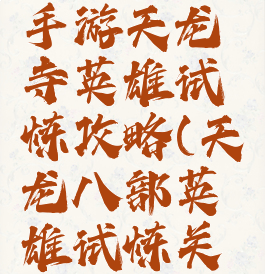 手游天龙
寺英雄试
炼攻略(天
龙八部英
雄试炼关